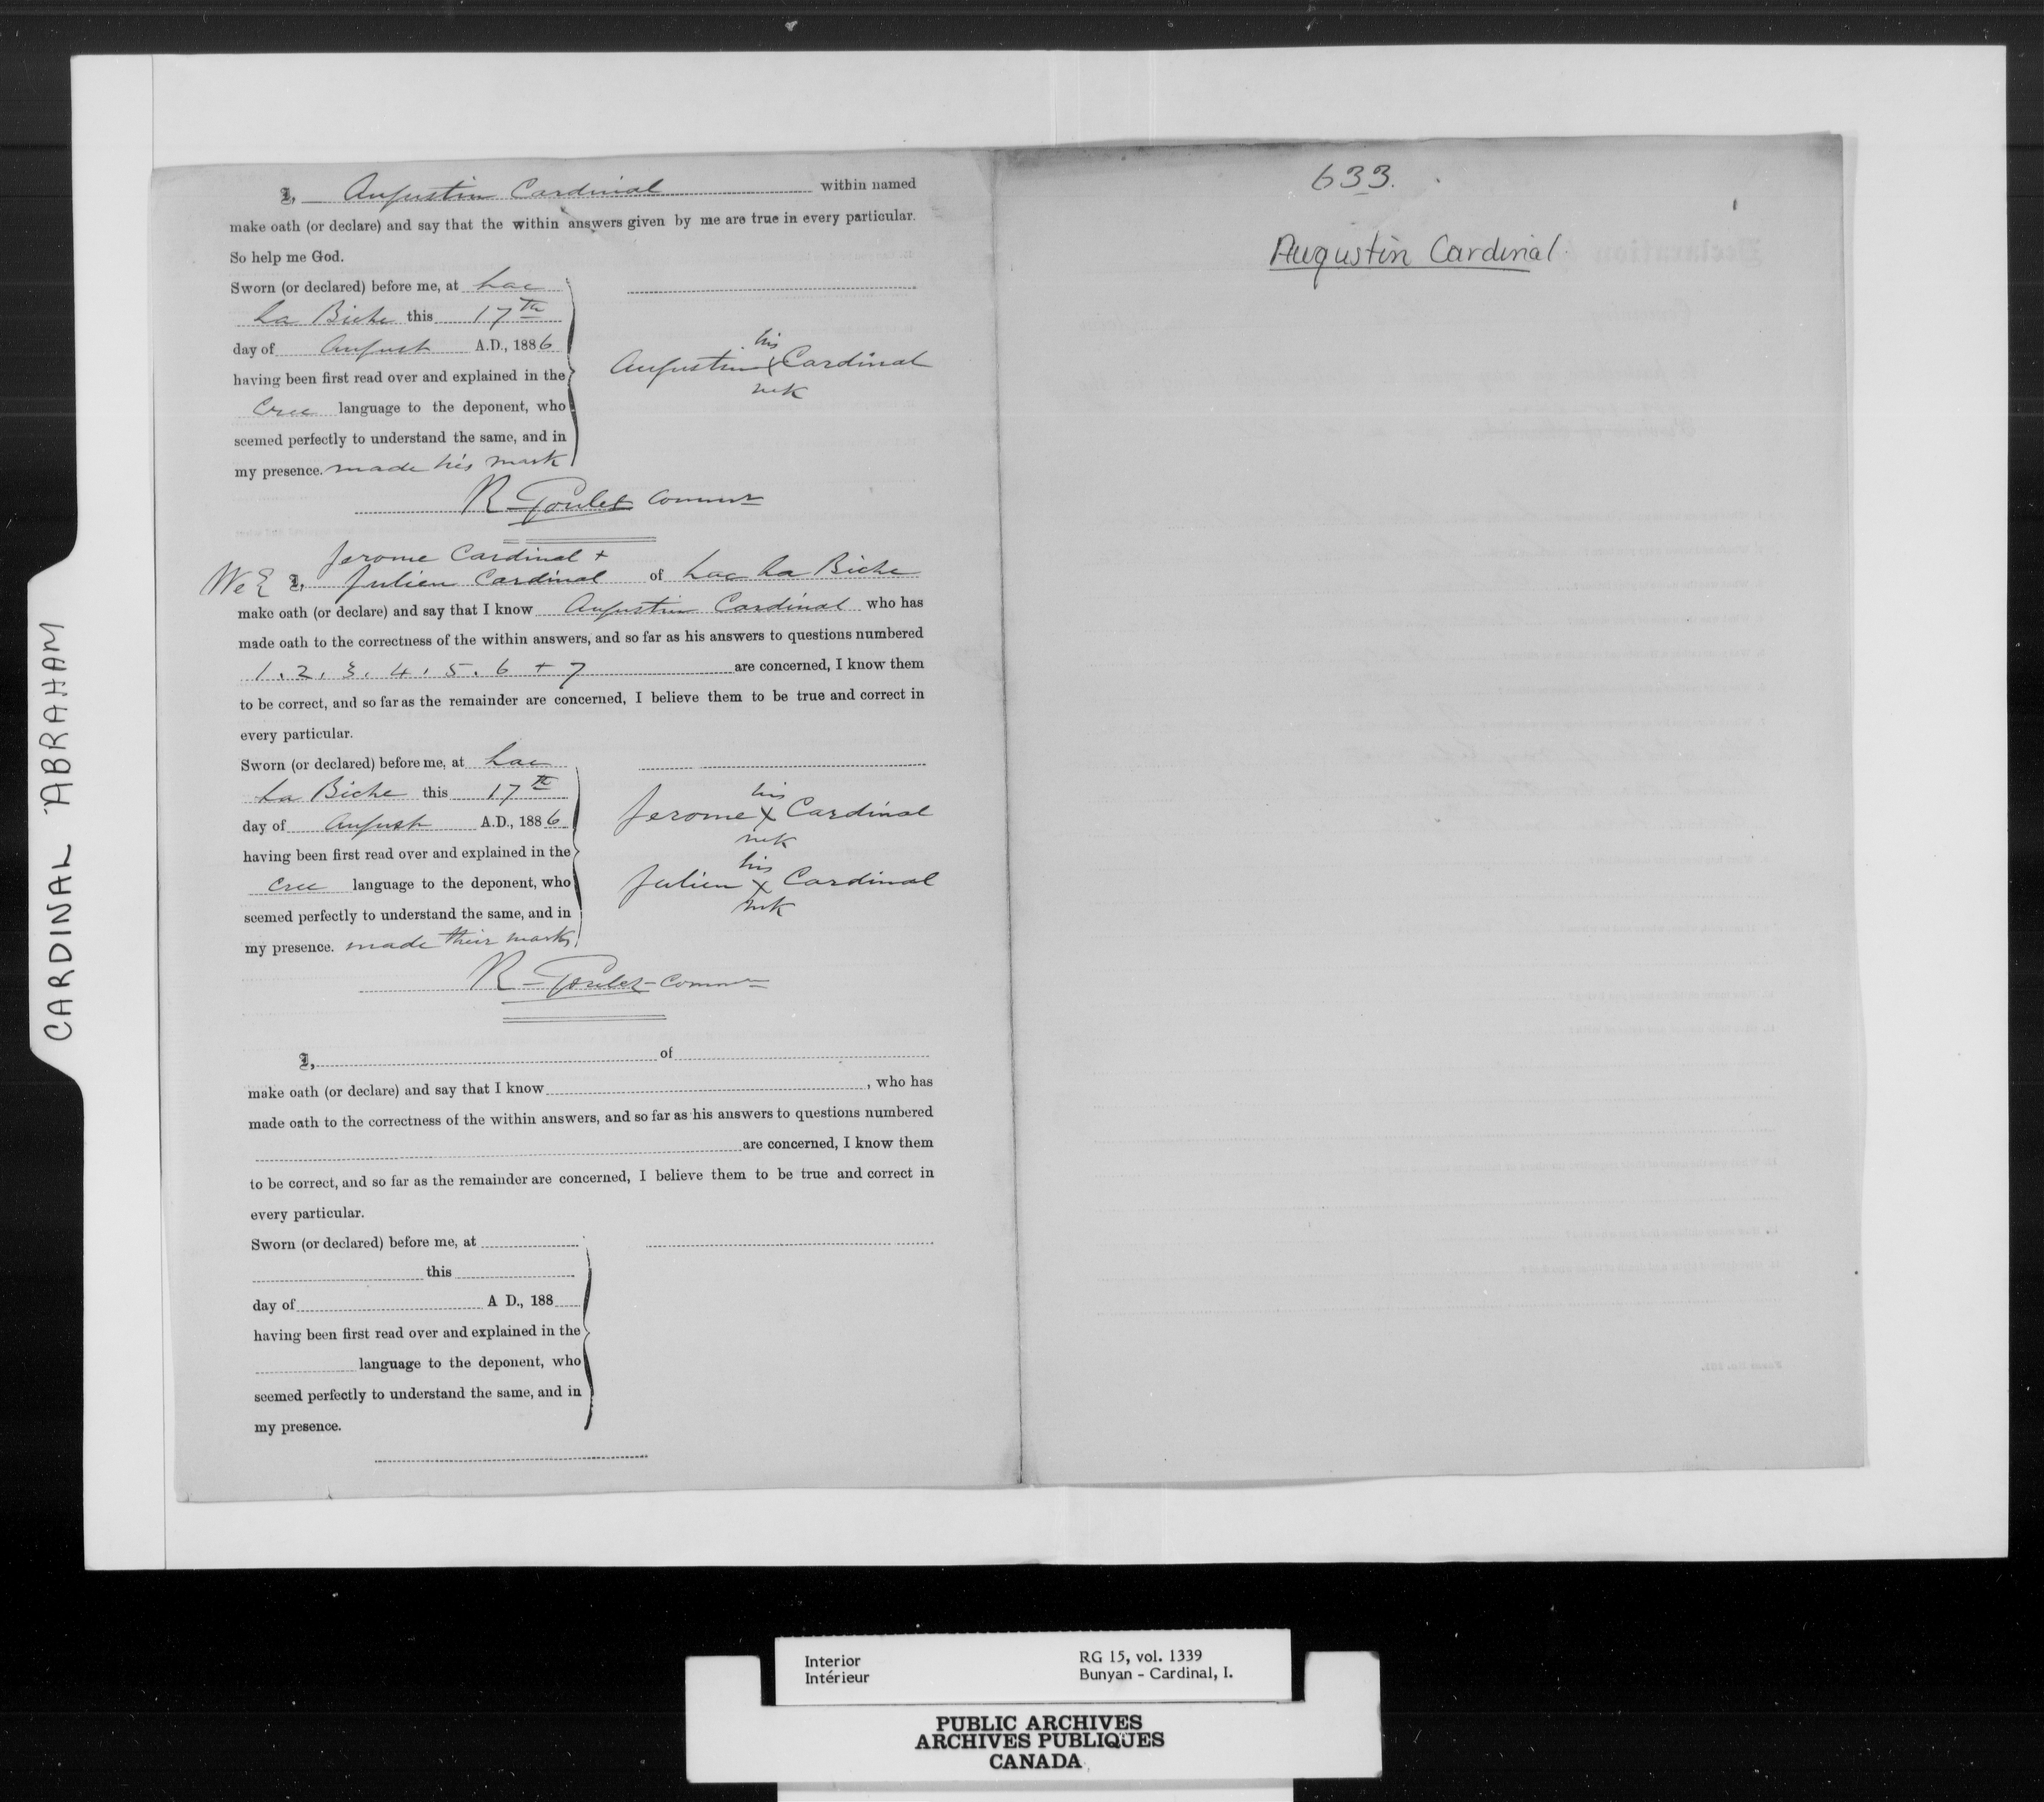 CARDINAL ABRAHAM
I, Augustin Cardinal within named
make oath (or declare) and say that the within answers given by me are true in every particular.
So help me God.
Sworn (or declared) before me, at Lac
La Biche this 17th
day of August A.D., 1886
having been first read over and explained in the
Cree language to the deponent, who
seemed perfectly to understand the same, and in
my presence. made his mark
his
Augustin X Cardinal
mk
R Goulet Commr
Jerome Cardinal +
We I, Julien Cardinal of Lac La Biche
make oath (or declare) and say that I know Augustin Cardinal who has
made oath to the correctness of the within answers, and so far as his answers to questions numbered
1. 2, 3, 4, 5. 6 + 7 are concerned, I know them
to be correct, and so far as the remainder are concerned, I believe them to be true and correct in
every particular.
Sworn (or declared) before me, at Lac
La Biche this 17th
day of August A.D., 1886
having been first read over and explained in the
Cree language to the deponent, who
seemed perfectly to understand the same, and in
my presence. made their marks
his
Jerome X Cardinal
mk
his
Julien X Cardinal
mk
R - Goulet - Commr
I, of
make oath (or declare) and say that I know , who has
made oath to the correctness of the within answers, and so far as his answers to questions numbered
are concerned, I know them
to be correct, and so far as the remainder are concerned, I believe them to be true and correct in
every particular.
Sworn (or declared) before me, at
this
day of A D., 188
having been first read over and explained in the
language to the deponent, who
seemed perfectly to understand the same, and in
my presence.
633.
Augustin Cardinal.
Interior
Intérieur
RG 15, vol. 1339
Bunyan - Cardinal, I.
PUBLIC ARCHIVES
ARCHIVES PUBLIQUES
CANADA